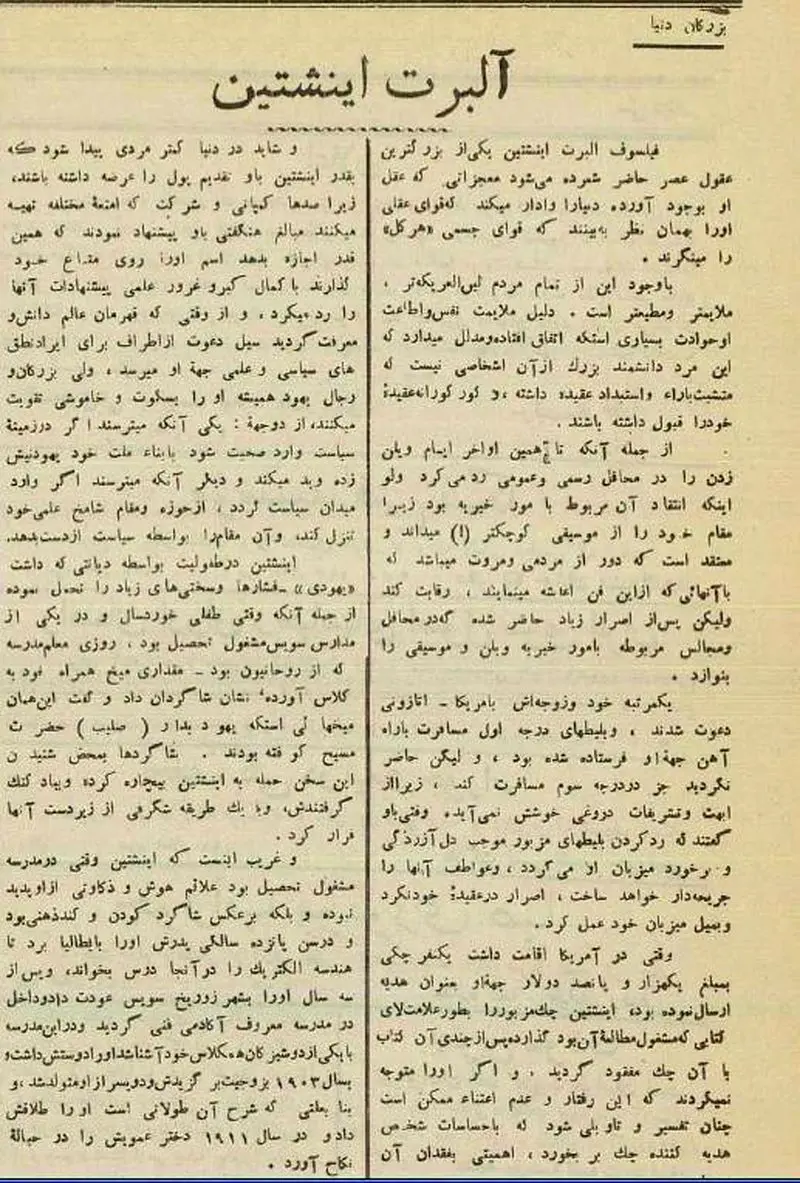 بزرگان دنیا
آلبرت اینشتین
فیلسوف البرت اینشتین یکی‌از بزرگترین
عقول عصر حاضر شمرده می‌شود معجزاتی که عقل
او بوجود آورده دنیارا وادار میکند که‌قوای عقلی
اورا بهمان نظر به‌بینند که قوای جسمی «هرکل»
را مینگرند .
باوجود این از تمام مردم لین‌العریکه‌تر ،
ملایمتر ومطیعتر است . دلیل ملایمت نفس‌واطاعت
اوحوادث بسیاری استکه اتفاق افتاده‌ومدلل میدارد که
این مرد دانشمند بزرك ازآن اشخاصی نیست که
متشبث‌باراء واستبداد عقیده داشته ، و کور کورانه‌عقیدهٔ
خودرا قبول داشته باشند .
از جمله آنکه تا همین اواخر ایام ویلن
زدن را در محافل رسمی وعمومی رد می‌کرد ولو
اینکه انتقاد آن مربوط با مور خیریه بود زیرا
مقام خود را از موسیقی کوچکتر (!) میداند و
معتقد است که دور از مردمی ومروت میباشد که
باآنهائی‌که ازاین فن اعاشه مینمایند ، رقابت کند
ولیکن پس‌از اصرار زیاد حاضر شده که‌در محافل
ومجالس مربوطه بامور خیریه ویلن و موسیقی را
بنوازد .
یکمرتبه خود وزوجه‌اش بامریکا - اتازونی
دعوت شدند ، وبلیطهای درجه اول مسافرت باراه
آهن جهةاو فرستاده شده بود ، و لیکن حاضر
نگردید جز دردرجه سوم مسافرت کند ، زیرااز
ابهت وتشریفات دروغی خوشش نمی‌آید، وقتی‌باو
گفتند که ردکردن بلیطهای مزبور موجب دل آزردگی
و برخورد میزبان او می‌گردد ، وعواطف آنها را
جریحه‌دار خواهد ساخت ، اصرار درعقیدهٔ خودنکرد
وبمیل میزبان خود عمل کرد.
وقتی در آمریکا اقامت داشت یکنفر چکی
بمبلغ یکهزار و پانصد دولار جهةاو بعنوان هدیه
ارسال‌نموده بود، اینشتین چك‌مزبوررا بطورعلامت‌لای
کتابی که‌مشغول‌مطالعهٔ‌آن‌بود گذارده‌پس‌ازچندی آن کتاب
با آن چك مفقود گردید . و اگر اورا متوجه
نمیکردند که این رفتار و عدم اعتناء ممکن است
چنان تفسیر و تاویلی شود که باحساسات شخص
هدیه کننده چك بر بخورد ، اهمیتی بفقدان آن
و شاید در دنیا کمتر مردی پیدا شود که
بقدر اینشتین باو تقدیم پول را عرضه داشته باشند،
زیرا صدها کمپانی و شرکت که امتعهٔ مختلفه تهیه
میکنند مبالغ هنگفتی باو پیشنهاد نمودند که همین
قدر اجازه بدهد اسم اورا روی متاع خود
گذارند با کمال کبرو غرور علمی پیشنهادات آنها
را رد میکرد ، و از وقتی که قهرمان عالم دانش‌و
معرفت‌گردید سیل دعوت ازاطراف برای ایرادنطق
های سیاسی و علمی جهة او میرسد ، ولی بزرکان‌و
رجال یهود همیشه او را بسکوت و خاموشی تقویت
میکنند، از دوجهة : یکی آنکه میترسند اگر درزمینهٔ
سیاست وارد صحبت شود بابناء ملت خود یهودنیش
زده وبد میکند و دیگر آنکه میترسند اگر وارد
میدان سیاست گردد ، ازحوزه ومقام شامخ علمی‌خود
تنزل کند، وآن مقام‌را بواسطه سیاست ازدست‌بدهد.
اینشتین درطفولیت بواسطه دیانتی که داشت
«یهودی» ـ فشارها وسختی‌های زیاد را تحمل نموده
از جمله آنکه وقتی طفلی خوردسال و در یکی از
مدارس سویس‌مشغول تحصیل بود ، روزی معلم‌مدرسه
که از روحانیون بود ـ مقداری میخ همراه خود به
کلاس آورده، نشان شاگردان داد و گفت این‌همان
میخها ئی استکه یهود بدار ( صلیب ) حضرت
مسیح کوفته بودند . شاگردها بمحض شنیدن
این سخن حمله به اینشتین بیچاره کرده وبباد کتك
گرفتندش، وبا یك طریقه شگرفی از زیردست آنها
فرار کرد .
و غریب اینست که اینشتین وقتی درمدرسه
مشغول تحصیل بود علائم هوش و ذکاوتی ازاوپدید
نبوده و بلکه برعکس شاگرد کودن و کندذهنی‌بود
و درسن پانزده سالگی پدرش اورا بایطالیا برد تا
هندسه الکتریك را درآنجا درس بخواند، وپس‌از
سه سال اورا بشهر زوریخ سویس عودت دادوداخل
در مدرسه معروف آکادمی فنی گردید ودراین‌مدرسه
با یکی‌از‌دوشیزکان‌همکلاس‌خود‌آشناشد‌اورادوستش‌داشت‌و
بسال ۱۹۰۳ بزوجیت‌بر گزیدش‌ودوپسر‌از‌اومتولدشد، و
بنا بعلتی که شرح آن طولانی است او را طلاقش
دادو در سال ۱۹۱۱ دختر عمویش را در حبالهٔ
نکاح آورد .